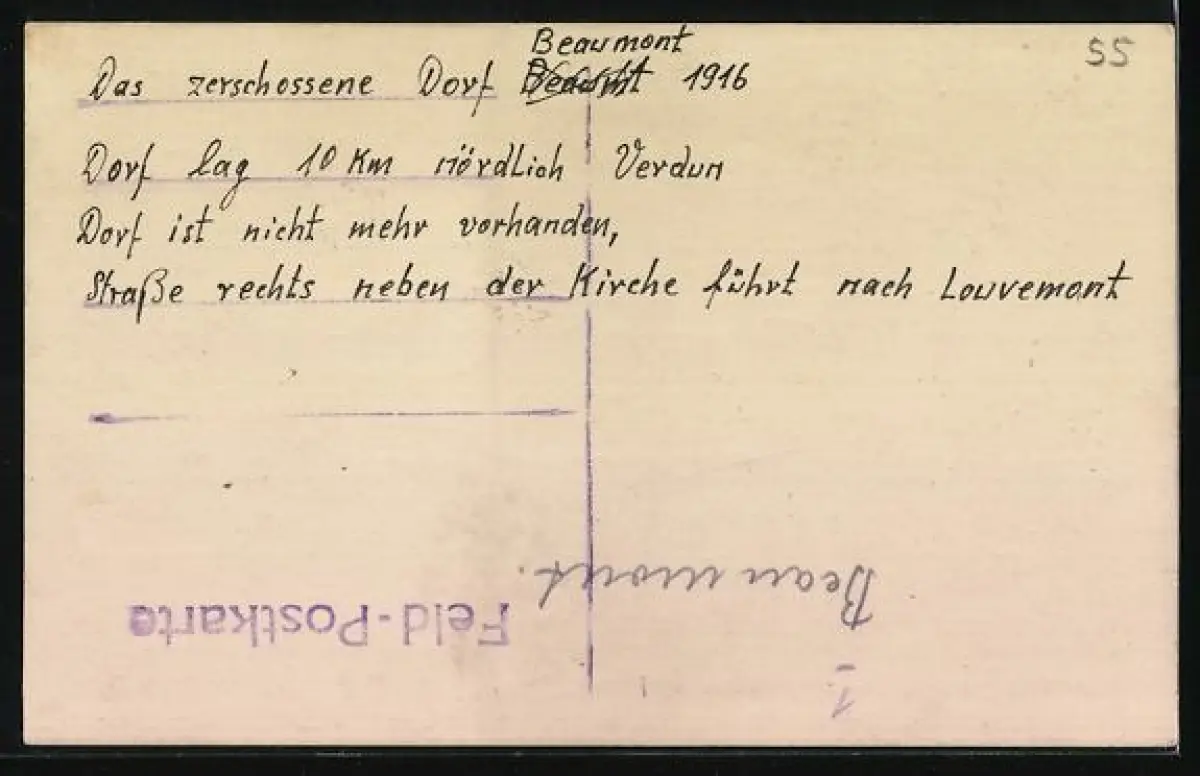 55
Beaumont
Das zerschossene Dorf 1916
Dorf lag 10 Km nördlich Verdun
Dorf ist nicht mehr vorhanden,
Straße rechts neben der Kirche führt nach Louvemont
Beaumont.
Feld-Postkarte
1.